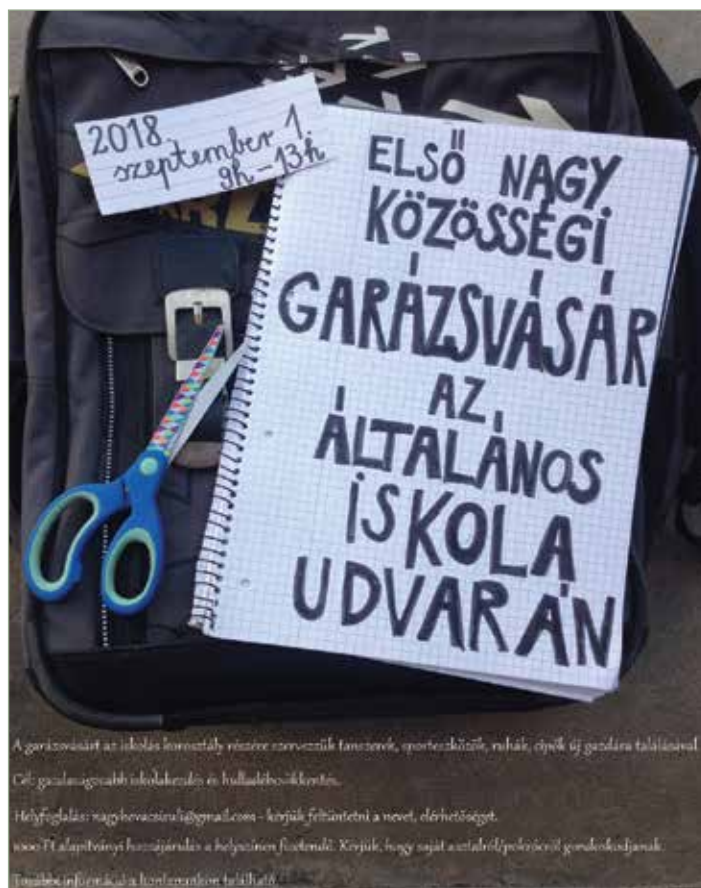 2018.
szeptember 1.
9h-13h
ELSŐ NAGY
KÖZÖSSÉGI
GARÁZSVÁSÁR
AZ
ÁLTALÁNOS
ISKOLA
UDVARÁN
A garázsvásárt az iskolás korosztály részére szervezzük tanszerek, sporteszközök, ruhák, cipők új gazdára találásával
Cél: gazdaságosabb iskolakezdés és hulladékcsökkentés.
Helyfoglalás: - kérjük feltüntetni a nevet, elérhetőséget.
1000 Ft alapítványi hozzájárulás a helyszínen fizetendő. Kérjük, hogy saját asztalról/pokrócról gondoskodjanak.
További információ a honlapunkon található.